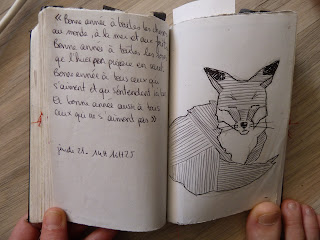 « Bonne année à toutes les choses
au monde, à la mer et aux forêts
Bonne année à toutes les
que l'univers prépare en secret
Bonne année à tous ceux qui
s'aiment et qui s'entendent
Et bonne année aussi à tous
ceux qui ne s'aiment pas »
jeudi 21 - 14H25